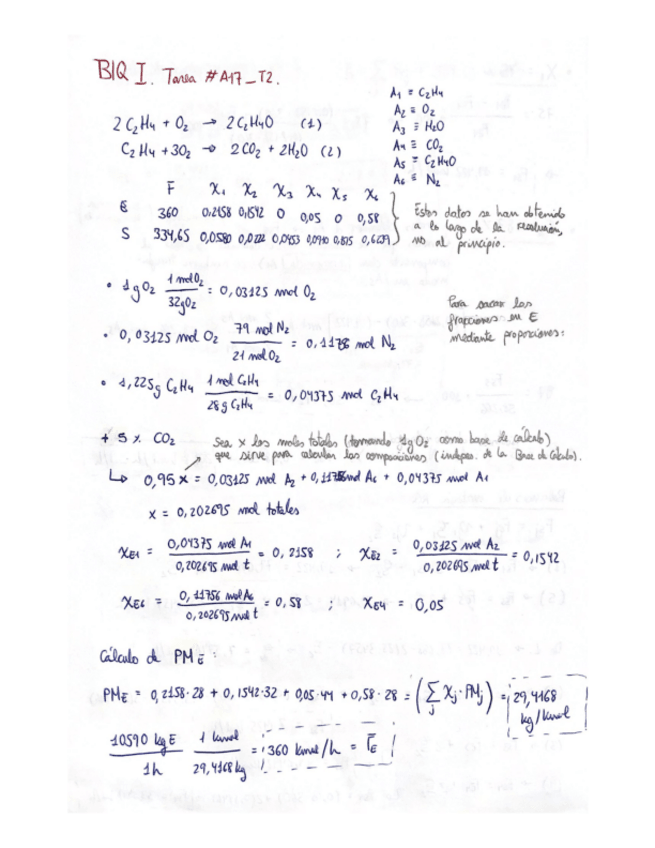 BIQ I. Tarea #A17_T2.
A1 ≡ C2H4
A2 ≡ O2
A3 ≡ H2O
A4 ≡ CO2
A5 ≡ C2H4O
A6 ≡ N2
2 C2H4 + O2 → 2 C2H4O (1)
C2H4 + 3O2 → 2 CO2 + 2H2O (2)
F X1 X2 X3 X4 X5 X6
E 360 0,2158 0,1542 0 0,05 0 0,58
S 334,65 0,0580 0,0453 0,0940 0,6239
Estos datos se han obtenido
a lo largo de la resolución,
no al principio.
• 1 g O2 1 mol O2 / 32 g O2 = 0,03125 mol O2
Para sacar las
fracciones en E
mediante proporciones:
• 0,03125 mol O2 79 mol N2 / 21 mol O2 = 0,1178 mol N2
• 1,225 g C2H4 1 mol C2H4 / 28 g C2H4 = 0,04375 mol C2H4
+ 5 % CO2
Sea x los moles totales (tomando 1g O2 como base de cálculo)
que sirve para calcular las composiciones (indepen. de la Base de Cálculo).
↳ 0,95 x = 0,03125 mol A2 + mol A6 + 0,04375 mol A1
x = 0,202695 mol totales
XE1 = 0,04375 mol A1 / 0,202695 mol t = 0,2158 ; XE2 = 0,03125 mol A2 / 0,202695 mol t = 0,1542
XE6 = 0,11756 mol A6 / 0,202695 mol t = 0,58 ; XE4 = 0,05
Cálculo de PME :
PME = 0,2158·28 + 0,1542·32 + 0,05·44 + 0,58·28 = (∑j Xj·PMj) = 29,4168
kg/kmol
10590 kg E / 1h 1 kmol / 29,4168 kg = 360 kmol/h = FE